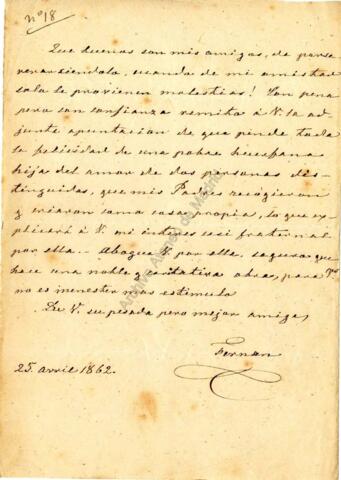 nº 18
Que buenas son mis amigos, de
sola le provienen molestias! Con pena
pero con confianza remito á V. la ad-
junta apuntacion de que pende toda
la felicidad de una pobre huerfana
hija del amor de dos personas dis-
tinguidas, que mis Padres recogieron
y criaron como cosa propia, lo que esp-
licará á V. mi interes casi fraternal
por ella. — Abogue V. por ella, segura que
hace una noble y caritativa obra, para V.
no es menester mas estimulo
De V. su pesada pero mejor amiga,
Fernan
25. avril 1862.
Archivo Ateneo de Madrid